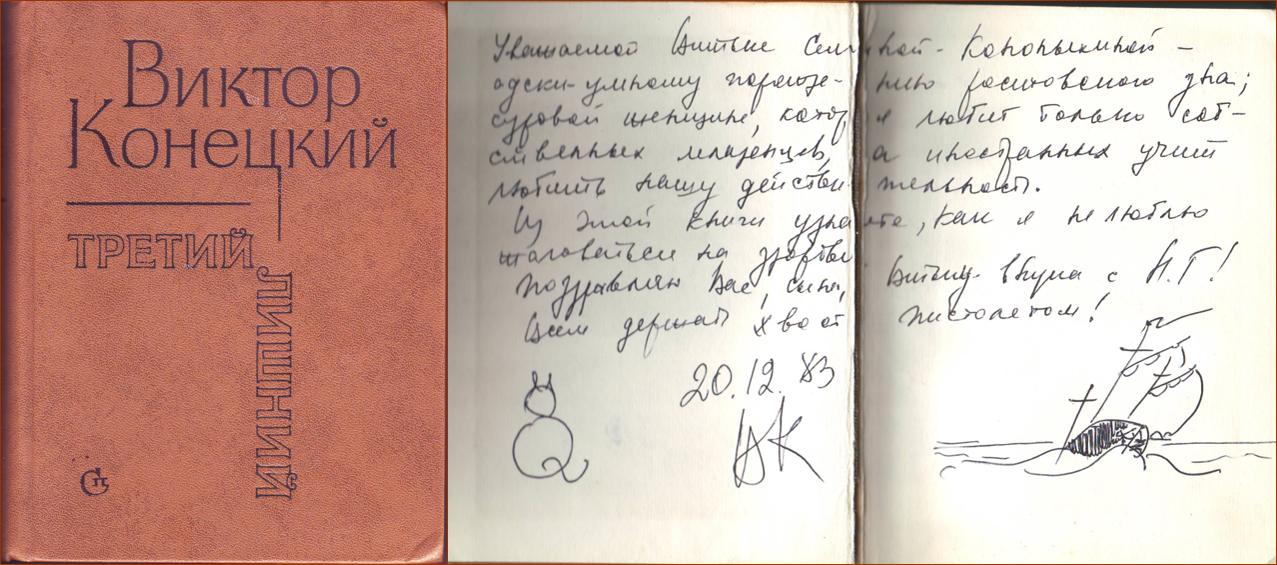 Виктор
Конецкий
ТРЕТИЙ
ЛИШНИЙ
Уважаемой Витьке
адски-умному порождению ростовского дна;
суровой женщине, которая любит только соб-
ственных младенцев, а иностранных учит
любить нашу действительность.
Из этой книги узнаете, как я не люблю
жаловаться на здоровье
Поздравляю Вас, сына, Витьку внука с Н.Г!
Всем держать хвост пистолетом!
20.12.83
ВК